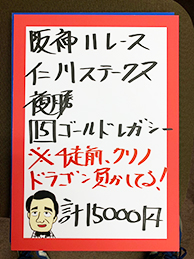 阪神11レース
仁川ステークス
複勝
15 ゴールドレガシー
※4走前、クリノ
ドラゴン負かしてる!
計15000円